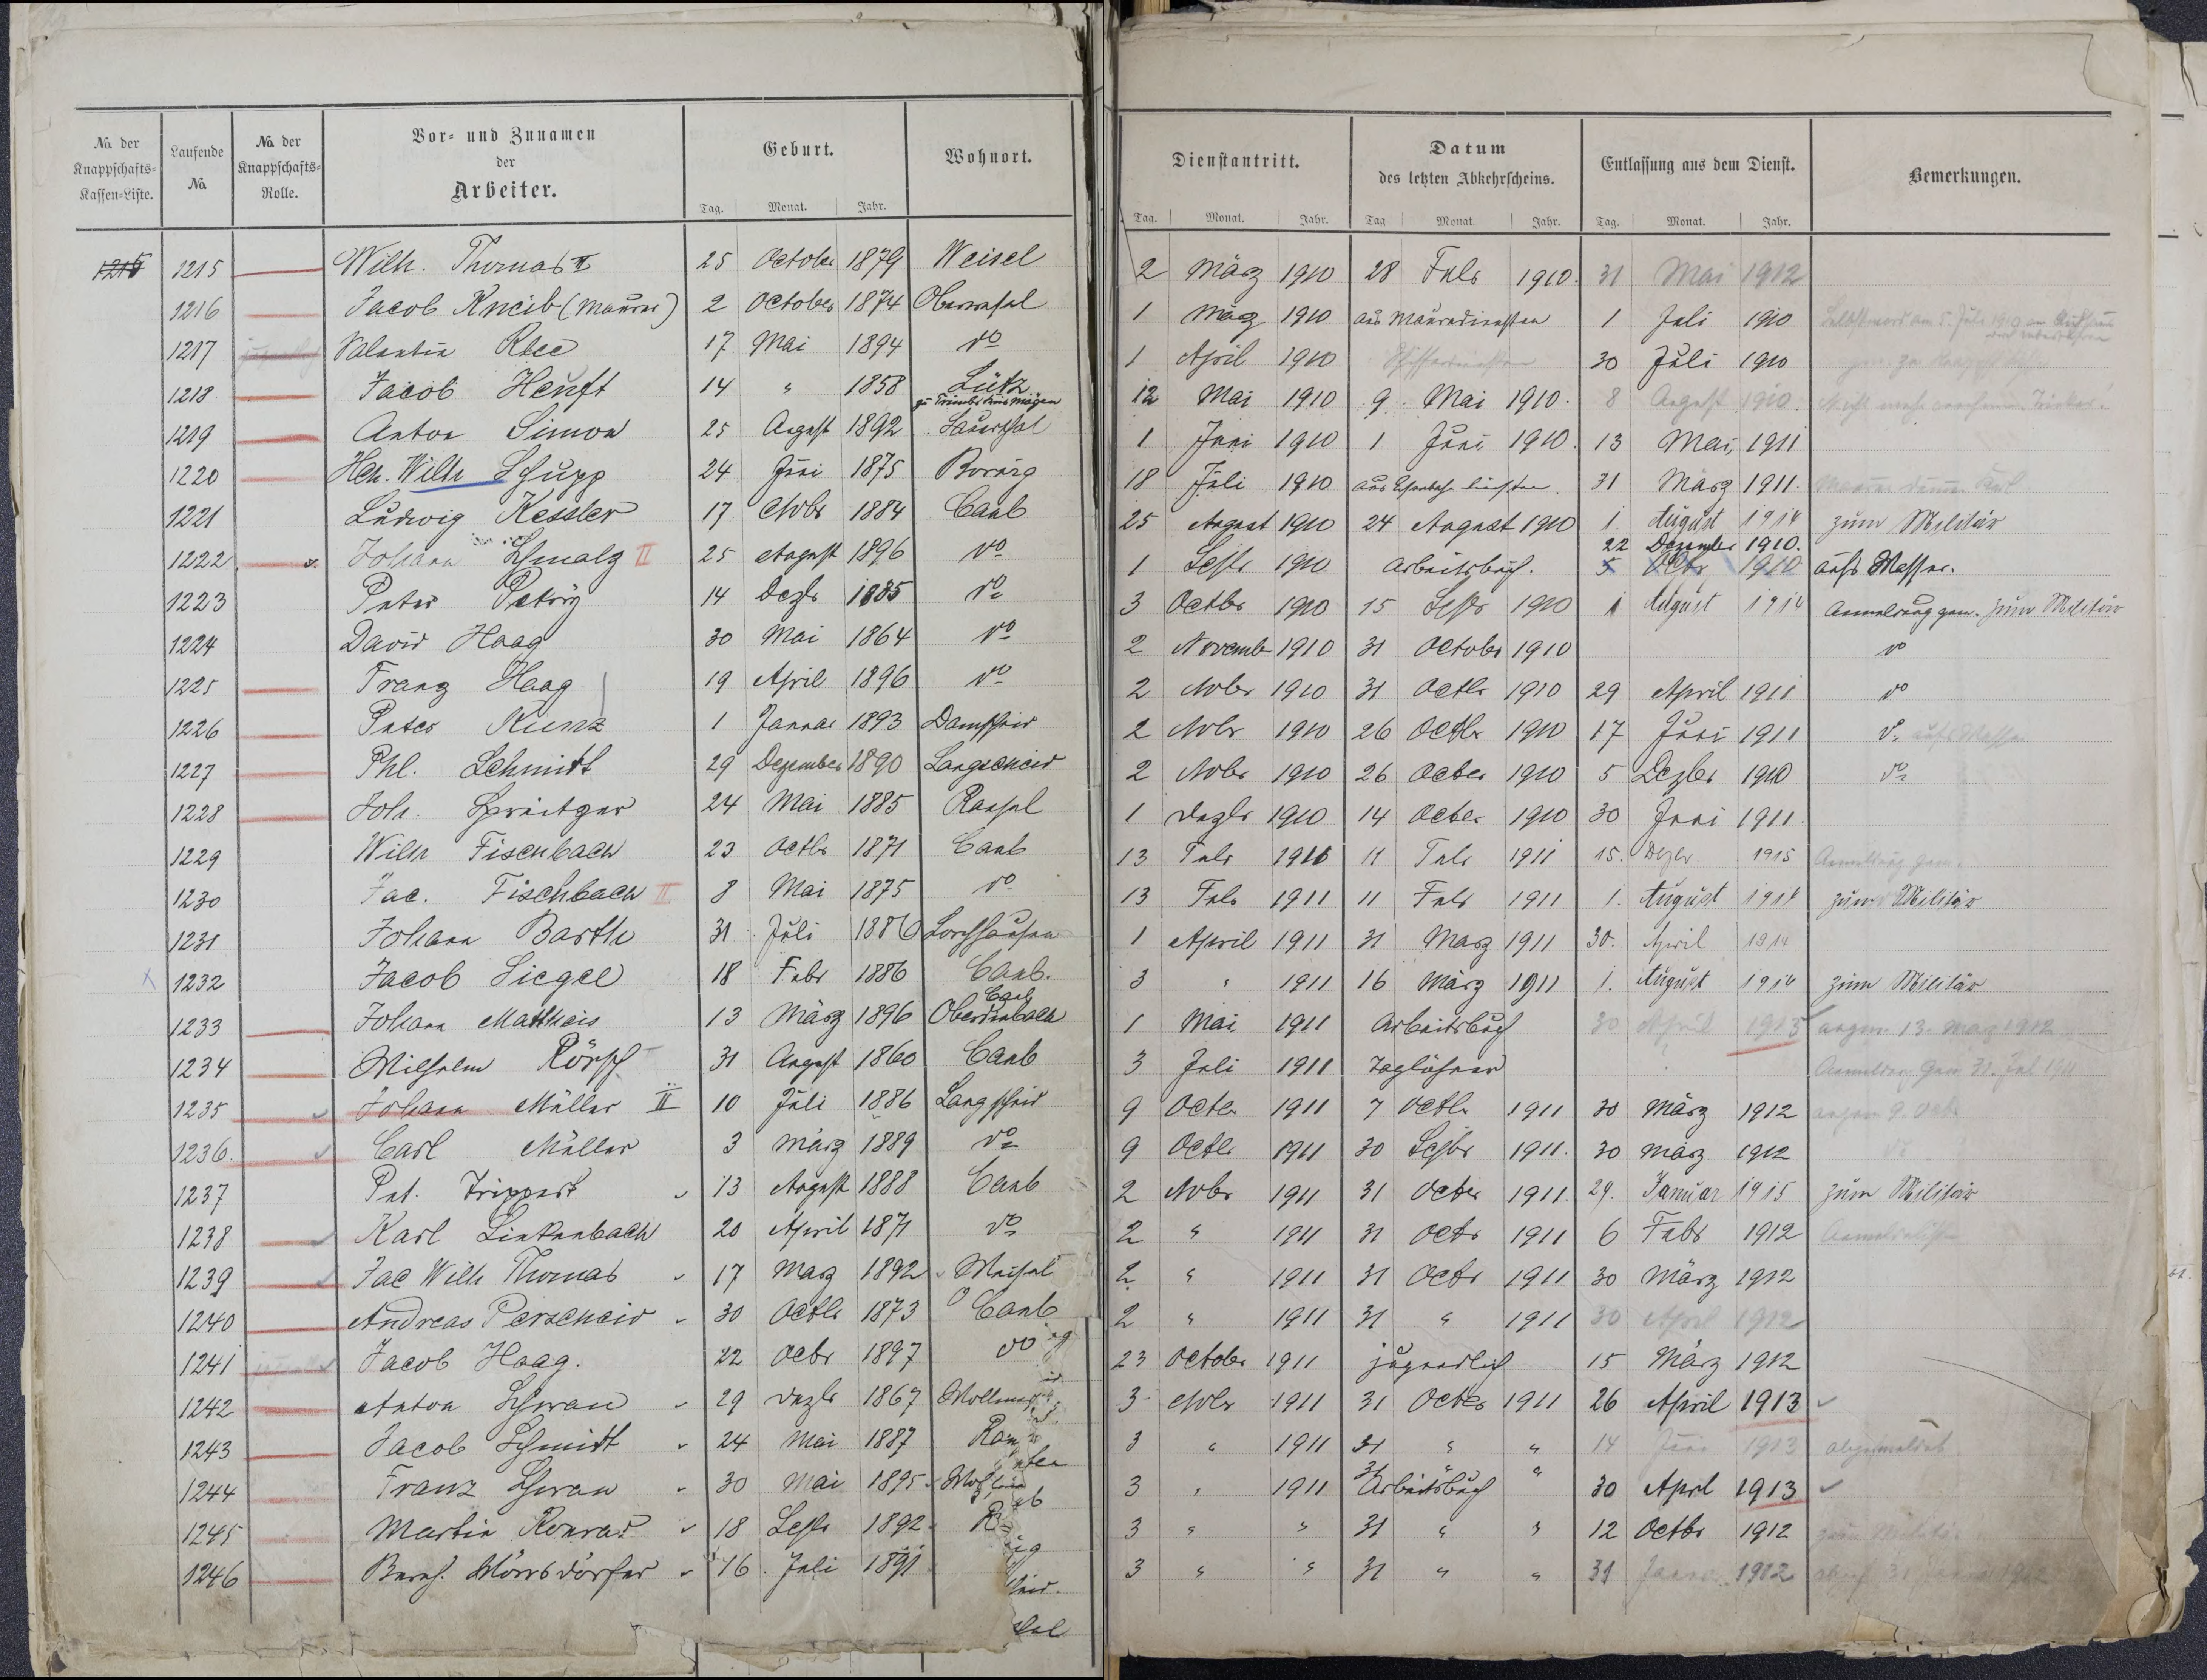 No. der Knappschafts-Kassen-Liste. | Laufende No. | No. der Knappschafts-Rolle. | Vor- und Zunamen der Arbeiter. | Geburt. Tag. Monat. Jahr. | Wohnort. | Dienstantritt. Tag. Monat. Jahr. | Datum des letzten Abkehrscheins. Tag Monat. Jahr. | Entlassung aus dem Dienst. Tag. Monat. Jahr. | Bemerkungen.
1215 1215 Wilh. Thomas II 25 October 1879 Weisel 2 März 1910 28 Febr 1910. 31 Mai 1912
1216 Jacob Kneib (Maurer) 2 October 1874 Oberwesel 1 März 1910 aus Maurerdiensten 1 Juli 1910
1217 Valentin 17 Mai 1894 do 1 April 1910 30 Juli 1910
1218 Jacob Heuft 14 " 1858 Lütz 12 Mai 1910 9. Mai 1910. 8 August 1910. Nicht mehr
1219 Anton Simon 25 August 1892 Sauerthal 1 Juni 1910 1 Juni 1910. 13 Mai 1911
1220 Hch. Wilh Schupp 24 Juni 1875 Bornig 18 Juli 1910 31 März 1911.
1221 Ludwig Kessler 17 Nobr 1884 Caub 25 August 1910 24 August 1910 1. August 1914 zum Militär
1222 Johann Schmalz II 25 August 1896 do 1 Septr 1910 Arbeitsbuch. 22 Dezember 1910. 5 Octr 1910 aufs Wasser.
1223 Peter Petry 14 Dezbr 1885 do 3 Octbr 1910 15 Septr 1910 1 August 1914 Anmeldung gem. zum Militär
1224 David Haag 30 Mai 1864 do 2 Novemb 1910 31 October 1910 do
1225 Franz Haag 19 April 1896 do 2 Nobr 1910 31 Octbr 1910 29 April 1911 do
1226 Peter Kunz 1 Januar 1893 Damscheid 2 Nobr 1910 26 Octbr 1910 17 Juni 1911 do aufs Wasser
1227 Phl. Schmidt 29 Dezember 1890 Langscheid 2 Nobr 1910 26 Octbr 1910 5 Dezbr 1910 do
1228 Joh. 24 Mai 1885 Ransel 1 Dezbr 1910 14 Octbr 1910 30 Juni 1911
1229 Wilh Fischbach 23 Octbr 1871 Caub 13 Febr 1911 11 Febr 1911 15. Dezbr. 1915 Anmeldung gem.
1230 Jac. Fischbach II 8 Mai 1875 do 13 Febr 1911 11 Febr 1911 1. August 1914 zum Militär
1231 Johann Barth 31 Juli 1886 Lorchhausen 1 April 1911 31 März 1911 30. April 1914
1232 Jacob Siegel 18 Febr 1886 Caub. 3 " 1911 16 März 1911 1. August 1914 zum Militär
1233 Johann Matthais 13 März 1896 Caub Oberdiebach 1 Mai 1911 Arbeitsbuch 30 April 1913 angem. 13. März 1912
1234 Wilhelm 31 August 1860 Caub 3 Juli 1911 Taglöhner Anmeldung gem 31. Jul 1911
1235 Johann Müller II 10 Juli 1886 Langscheid 9 Octbr 1911 7 Octbr 1911 30 März 1912 angem 9. Octb
1236. Carl Müller 3 März 1889 do 9 Octbr 1911 30 Septbr 1911. 30 März 1912 do
1237 Pet. Trippert 13 August 1888 Caub 2 Nobr 1911 31 Octbr 1911. 29. Januar 1915 zum Militär
1238 Karl Linkenbach 20 April 1871 do 2 " 1911 31 Octr 1911 6 Febr 1912
1239 Jac Wilh Thomas 17 März 1892 Weisel 2. " 1911 31 Octr 1911 30 März 1912
1240 Andreas Perscheid 30 Octbr 1873 Caub 2 " 1911 31 " 1911 30 April 1912
1241 Jacob Haag. 22 Octbr 1897 do 23 October 1911 jugendlich 15 März 1912
1242 Anton Schwan 29 Dezbr 1867 3 Nobr 1911 31 Octbr 1911 26 April 1913
1243 Jacob Schmidt 24 Mai 1887 Ran 3 " 1911 31 " " 14 Juni 1913 abgemeldet
1244 Franz Schwan 30 Mai 1895 3 " 1911 31 " " Arbeitsbuch 30 April 1913
1245 Martin Konrad 18 Septr 1892 3 " " 31 " " 12 Octbr 1912 zum Militär
1246 Bernh. Mörsdörfer 16. Juli 1891 3 " " 31 " " 31 Januar 1912